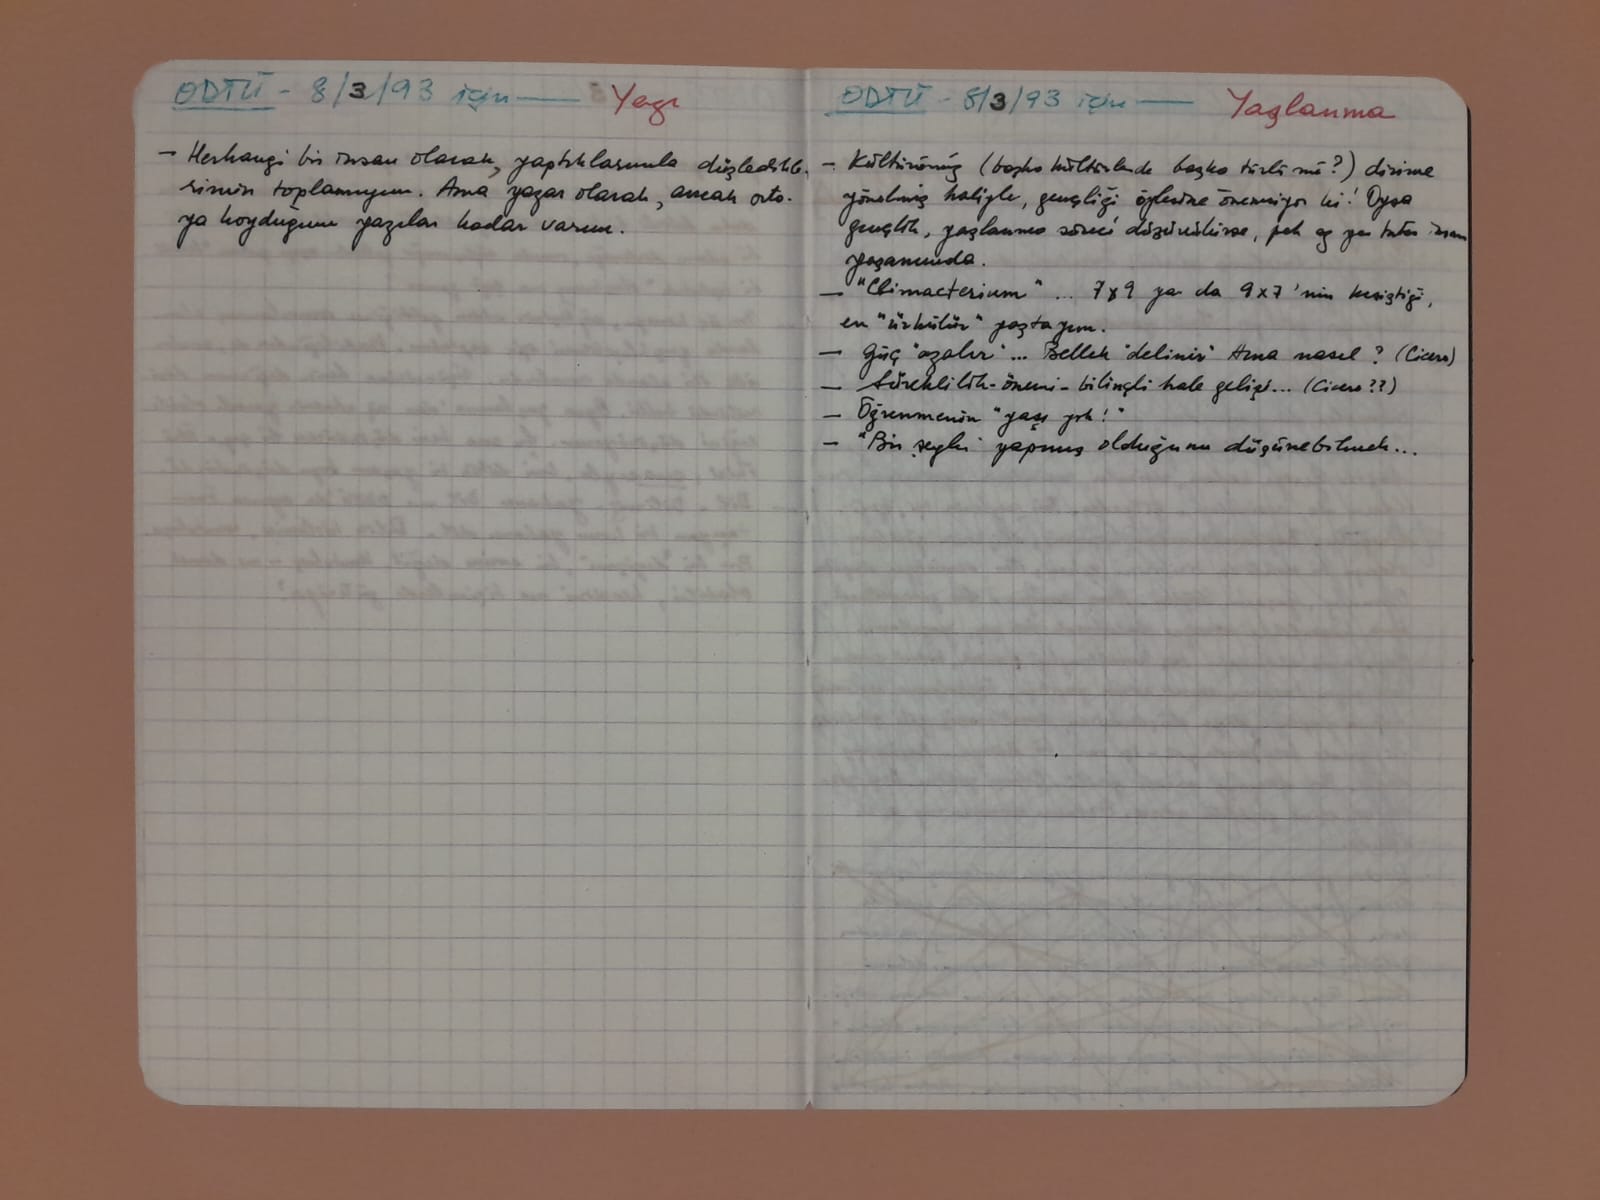 ODTÜ - 8/3/93 için — Yazı
- Herhangi bir insan olarak, yaptıklarımla düşledikle-
rimin toplamıyım. Ama yazar olarak, ancak orta-
ya koyduğum yazılar kadar varım.
ODTÜ - 8/3/93 için — Yaşlanma
- Kültürümüz (başka kültürlerde başka türlü mü?) dirime
yönelmiş haliyle, gençliği öylesine önemsiyor ki! Oysa
gençlik, yaşlanma süreci düşünülürse, pek az yer tutar insan
yaşamında.
- "Climacterium" ... 7x9 ya da 9x7'nin kesiştiği,
en "ürkülür" yaştayım.
- Güç "azalır"... Bellek "delinir" Ama nasıl? (Cicero)
- Süreklilik-önemi- bilinçli hale gelişi... (Cicero??)
- Öğrenmenin "yaşı yok!"
- "Bir şeyler" yapmış olduğunu düşünebilmek...